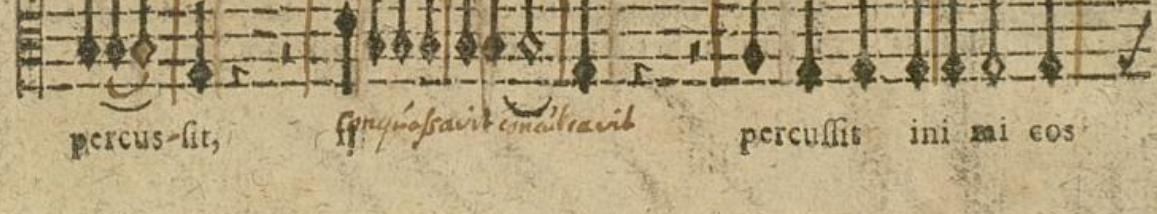 percus-sit, ij conquassavit conculcavit percussit ini mi cos